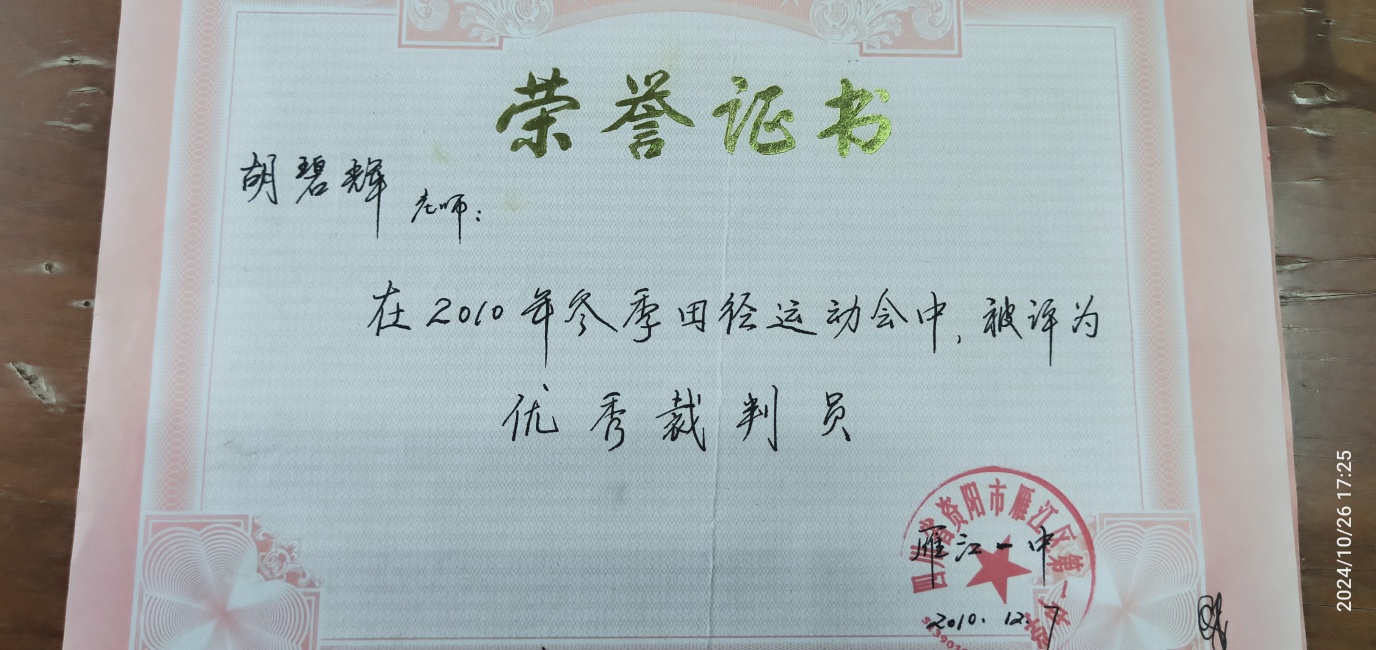 荣誉证书
胡碧辉 老师：
在2010年冬季田径运动会中，被评为
优秀裁判员
四川省资阳市雁江区第一
雁江一中
2010.12.7
2024/10/26 17:25